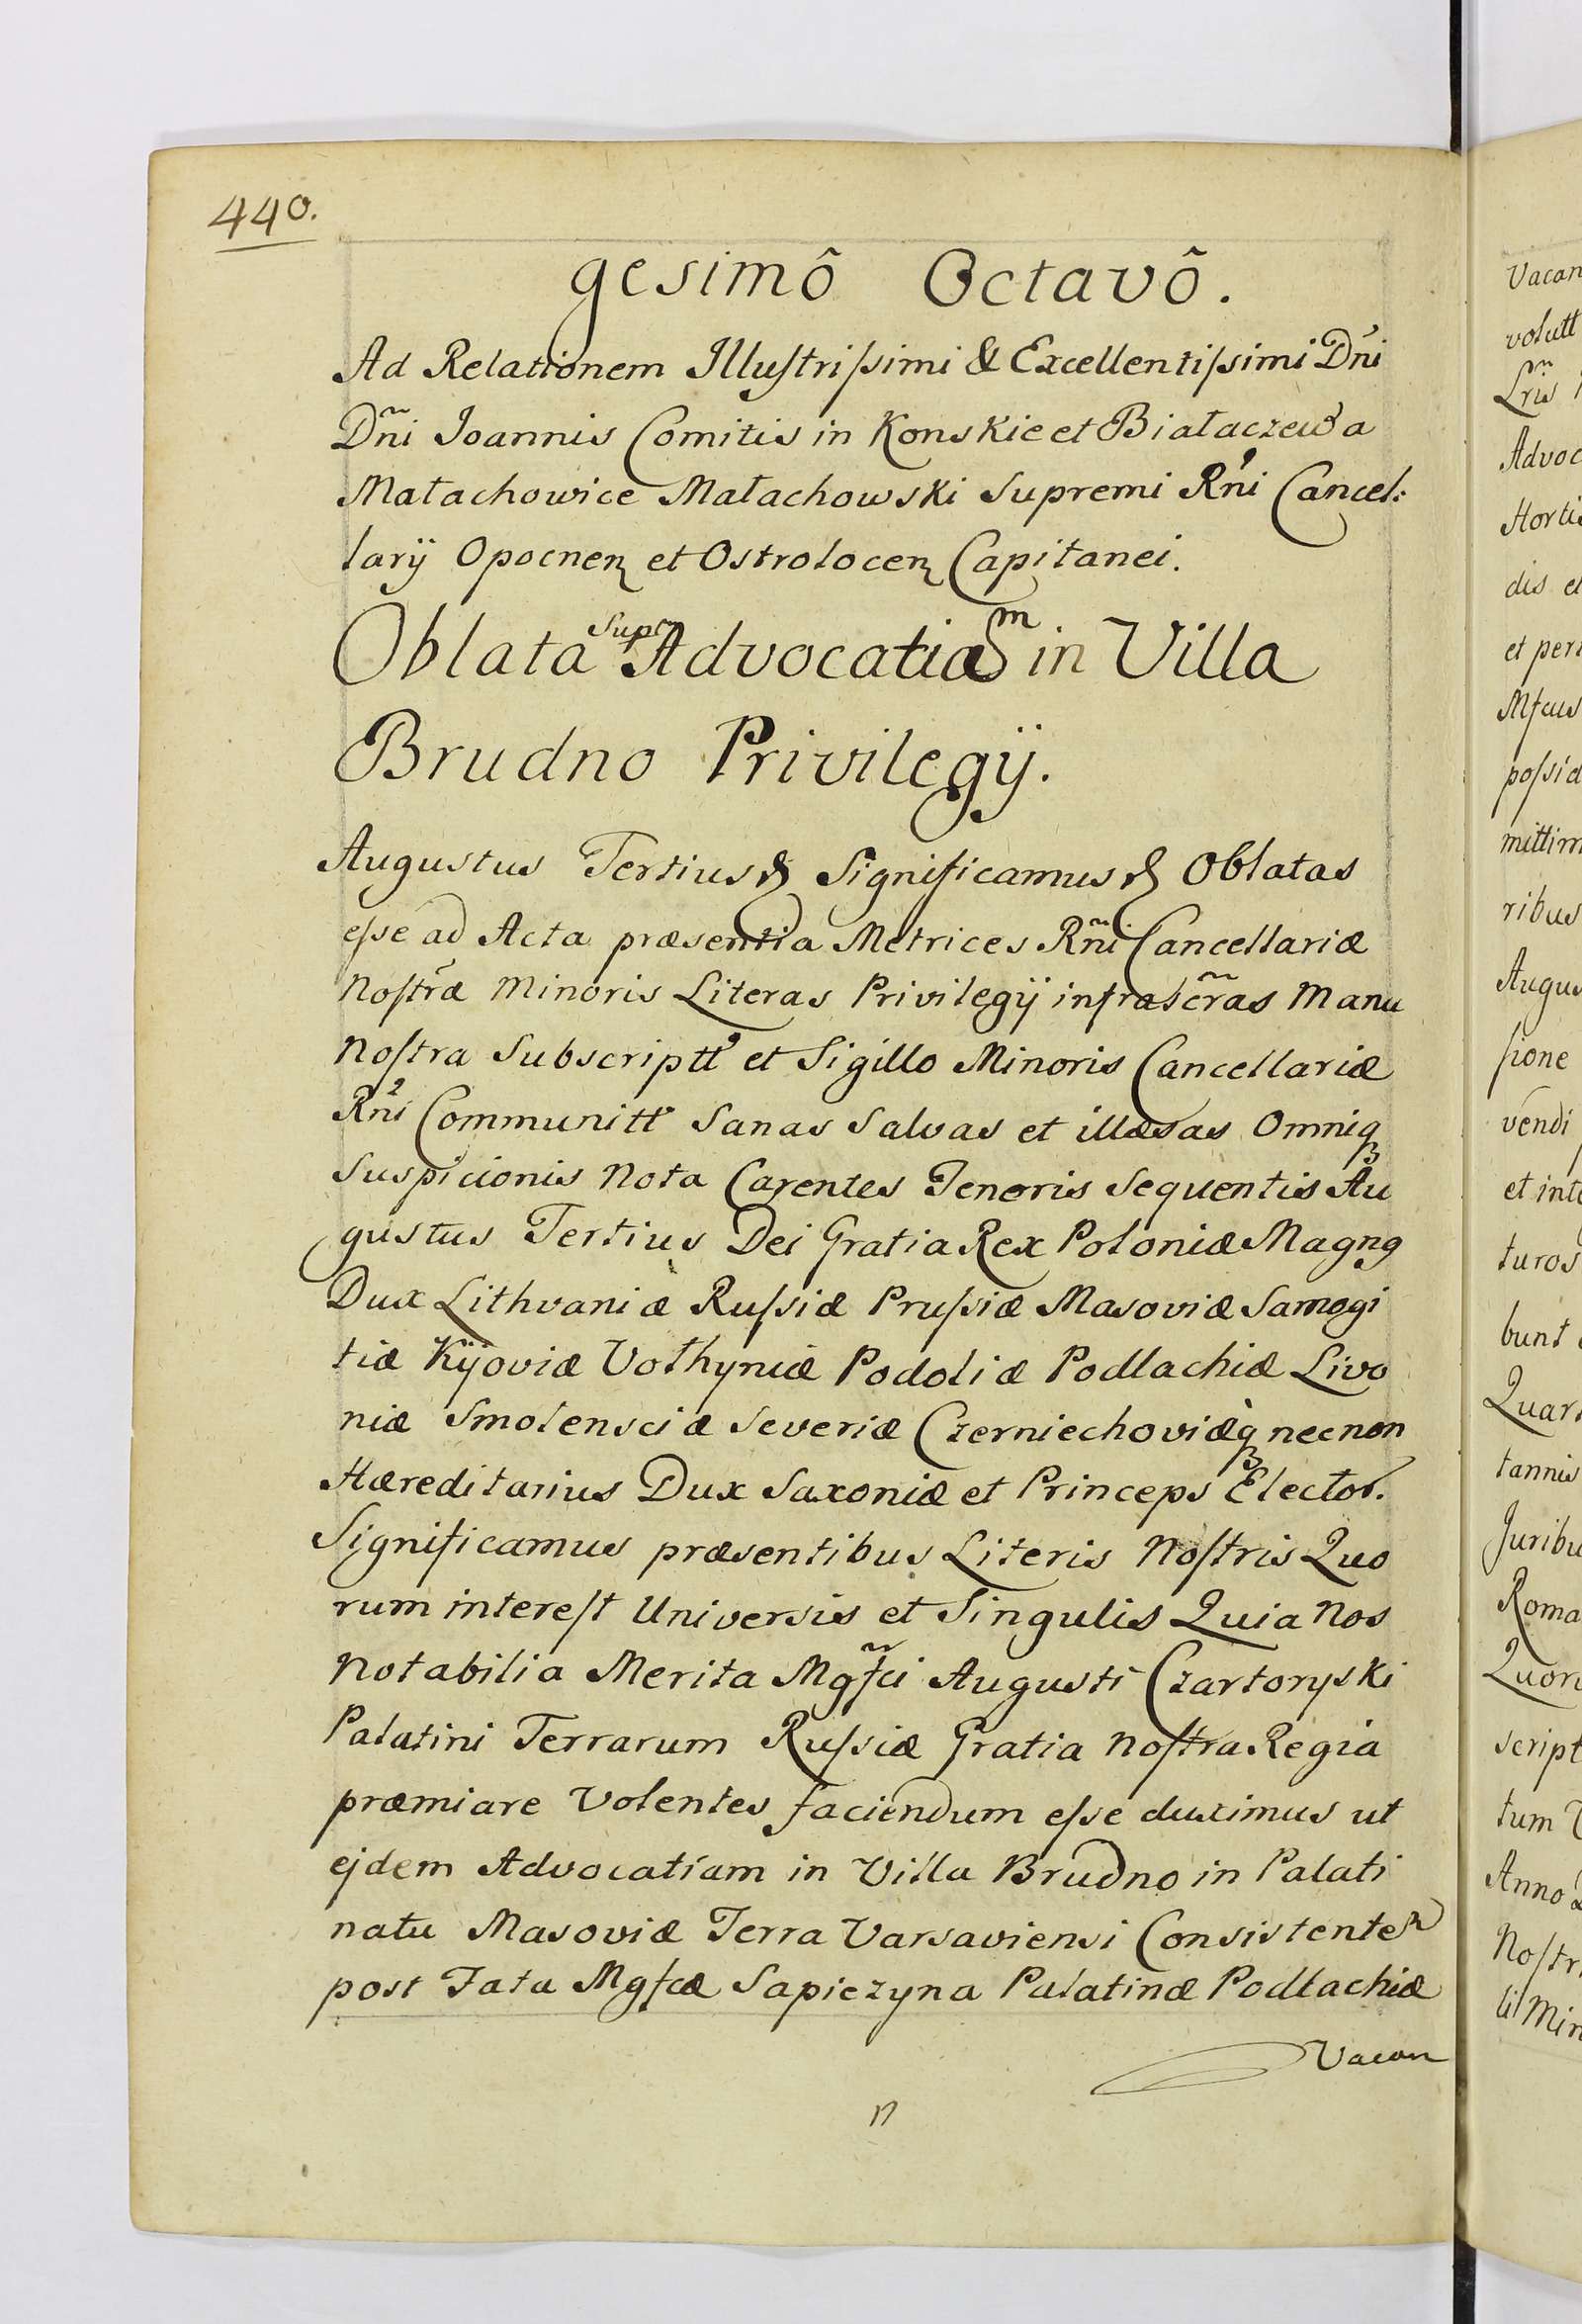 440.
gesimô Octavô.
Ad Relationem Illustrissimi & Excellentissimi Dñi
Dñi Joannis Comitis in Konskie et Białaczewa
Małachowice Małachowski Supremi Rñi Cancel:
larÿ Opocnen et Ostrolocen Capitanei.
Oblata Supr Advocatiam in Villa
Brudno Privilegÿ.
Augustus Tertius & Significamus & Oblatas
esse ad Acta præsentia Metrices Rñi Cancellariæ
Nostræ Minoris Literas Privilegÿ infrascr̃as Manu
Nostra Subscriptt et Sigillo Minoris Cancellariæ
Rñi Communitt Sanas Salvas et illæsas Omniq
Suspicionis Nota Carentes Tenoris Sequentis Au
gustus Tertius Dei Gratia Rex Poloniæ Magng
Dux Lithvaniæ Russiæ Prussiæ Masoviæ Samogi
tiæ Kÿoviæ Vołhyniæ Podoliæ Podlachiæ Livo
niæ Smolensciæ Severiæ Czerniechoviæq necnon
Hæreditarius Dux Saxoniæ et Princeps Elector.
Significamus præsentibus Literis Nostris Quo
rum interest Universis et Singulis Quia Nos
Notabilia Merita Mgfci Augusti Czartoryski
Palatini Terrarum Russiæ Gratia Nostra Regia
præmiare Volentes faciendum esse duximus ut
ejdem Advocatiam in Villa Brudno in Palati
natu Masoviæ Terra Varsaviensi Consistentem
post Fata Mgfcæ Sapiezyna Palatinæ Podlachiæ
Vacan
n
Vacan
volutt
Lris
Advoc
Horti
dis e
et per
Mfcus
possid
mittim
ribus
Augus
sione
vendi
et inte
turos
bunt
Quar
tannis
Juribu
Roma
Quor
script
tum
Anno
Nostr
lil Min